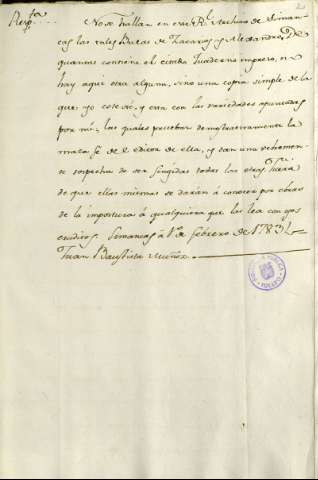 Resp.ta
No se hallan en este R.l Archivo de Siman-
cas las tales Bulas de Zacarias y Alexandro. De
quantas contiene el citado Quaderno impreso, no
hay aqui otra alguna, sino una copia simple de la
que yo cotexé, y con las variedades apuntadas
por mí: las quales prueban demostrativamente la
mala fé de el editor de ella, y dan una vehemente
sospecha de ser fingidas todas las otras. Fuera
de que ellas mismas se darán á conocer por obras
de la impostura á qualquiera que las lea con ojos
eruditos. Simancas á 1.º de febrero de 1783.
Juan Bautista Muñoz